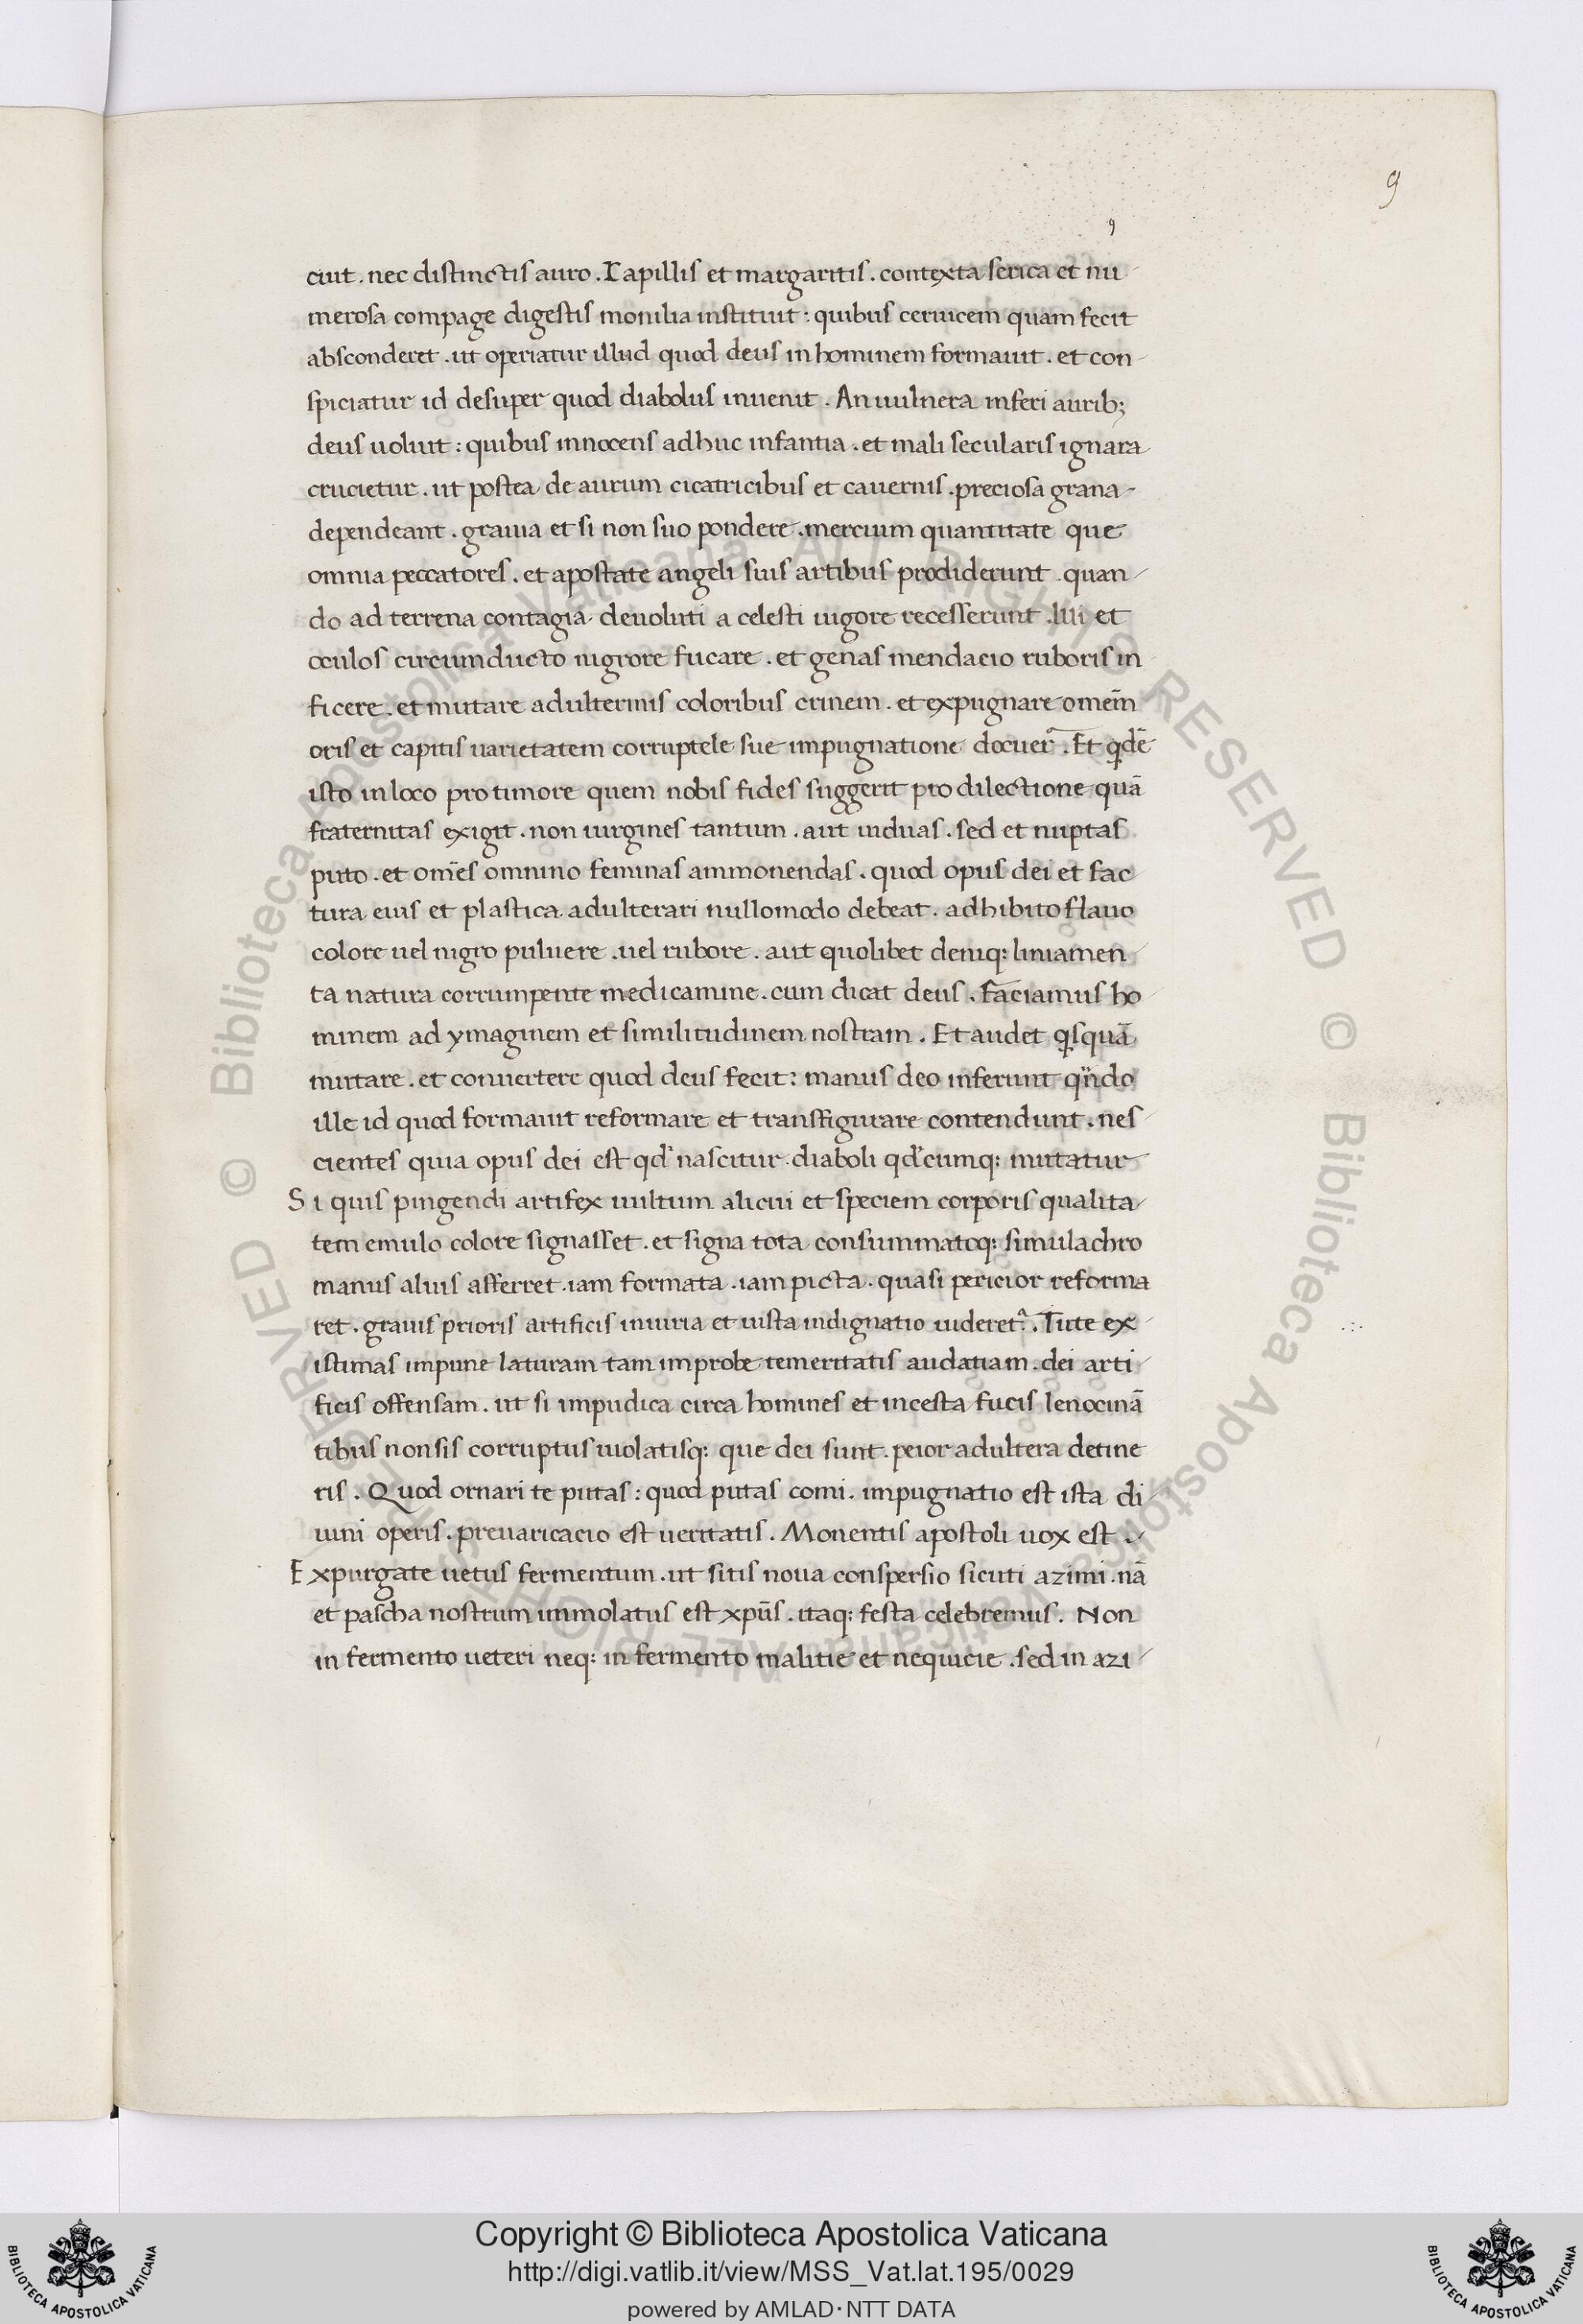 9
9
ciut . nec distinctis auro . Lapillis et margaritis . contexta serica et nu-
merosa compage digestis monilia instituit : quibus ceruicem quam fecit
absconderet . ut operiatur illud quod deus in hominem formauit . et con-
spiciatur id desuper quod diabolus inuenit . An uulnera inferi aurib;
deus uoluit : quibus innocens adhuc infantia . et mali secularis ignara
crucietur . ut postea de aurum cicatricibus et cauernis . preciosa grana-
dependeant . grauia et si non suo pondere . mercium quantitate que
omnia peccatores . et apostate angeli suis artibus prodiderunt . quan-
do ad terrena contagia deuoluti a celesti uigore recesserunt . Illi et
oculos circumducto nigrore fucare . et genas mendacio ruboris in
ficere . et mutare adulterinis coloribus crinem . et expugnare omēm
oris et capitis uarietatem corruptele sue impugnatione docuer̄ . Et qdē
isto in loco pro timore quem nobis fides suggerit pro dilectione quā
fraternitas exigit . non uirgines tantum . aut uiduas . sed et nuptas
puto . et om̄es omnino feminas ammonendas . quod opus dei et fac
tura eius et plastica adulterari nullomodo debeat . adhibito flauo
colore uel nigro puluere . uel rubore . aut quolibet deniq: liniamen-
ta natura corrumpente medicamine . cum dicat deus . Faciamus ho-
minem ad ymaginem et similitudinem nostram . Et audet qisquā
mutare . et conuertere quod deus fecit : manus deo inferunt qn̄do
ille id quod formauit reformare et transfigurare contendunt . nes-
cientes quia opus dei est qd' nascitur . diaboli qd'cumq: mutatur
Si quis pingendi artifex uultum alicui et speciem corporis qualita-
tem emulo colore signasset . et signa tota consummatoq: simulachro
manus aluis afferret . iam formata . iam picta . quasi pericior reforma
ret . grauis prioris artificis iniuria et iusta indignatio uideret' . Tu te ex-
istimas impune laturam tam improbe temeritatis audatiam . dei arti-
ficis offensam . ut si impudica circa homines et incesta fucis lenocinā
tibus non sis corruptus uiolatisq: que dei sunt . peior adultera detine
ris . Quod ornari te putas : quod putas comi . impugnatio est ista di-
uini operis . preuaricacio est ueritatis . Monentis apostoli uox est .
Expurgate uetus fermentum . ut sitis noua conspersio sicuti azimi . nā
et pascha nostrum immolatus est xpūs . itaq: festa celebremus . Non
in fermento ueteri neq: in fermento malitie et nequicie . sed in azi-
© Biblioteca Apostolica Vaticana ALL RIGHTS RESERVED © Biblioteca Apostolica Vaticana ALL RIGHTS RESERVED
BIBLIOTECA APOSTOLICA VATICANA
Copyright © Biblioteca Apostolica Vaticana
http://digi.vatlib.it/view/MSS_Vat.lat.195/0029
powered by AMLAD·NTT DATA
BIBLIOTECA APOSTOLICA VATICANA